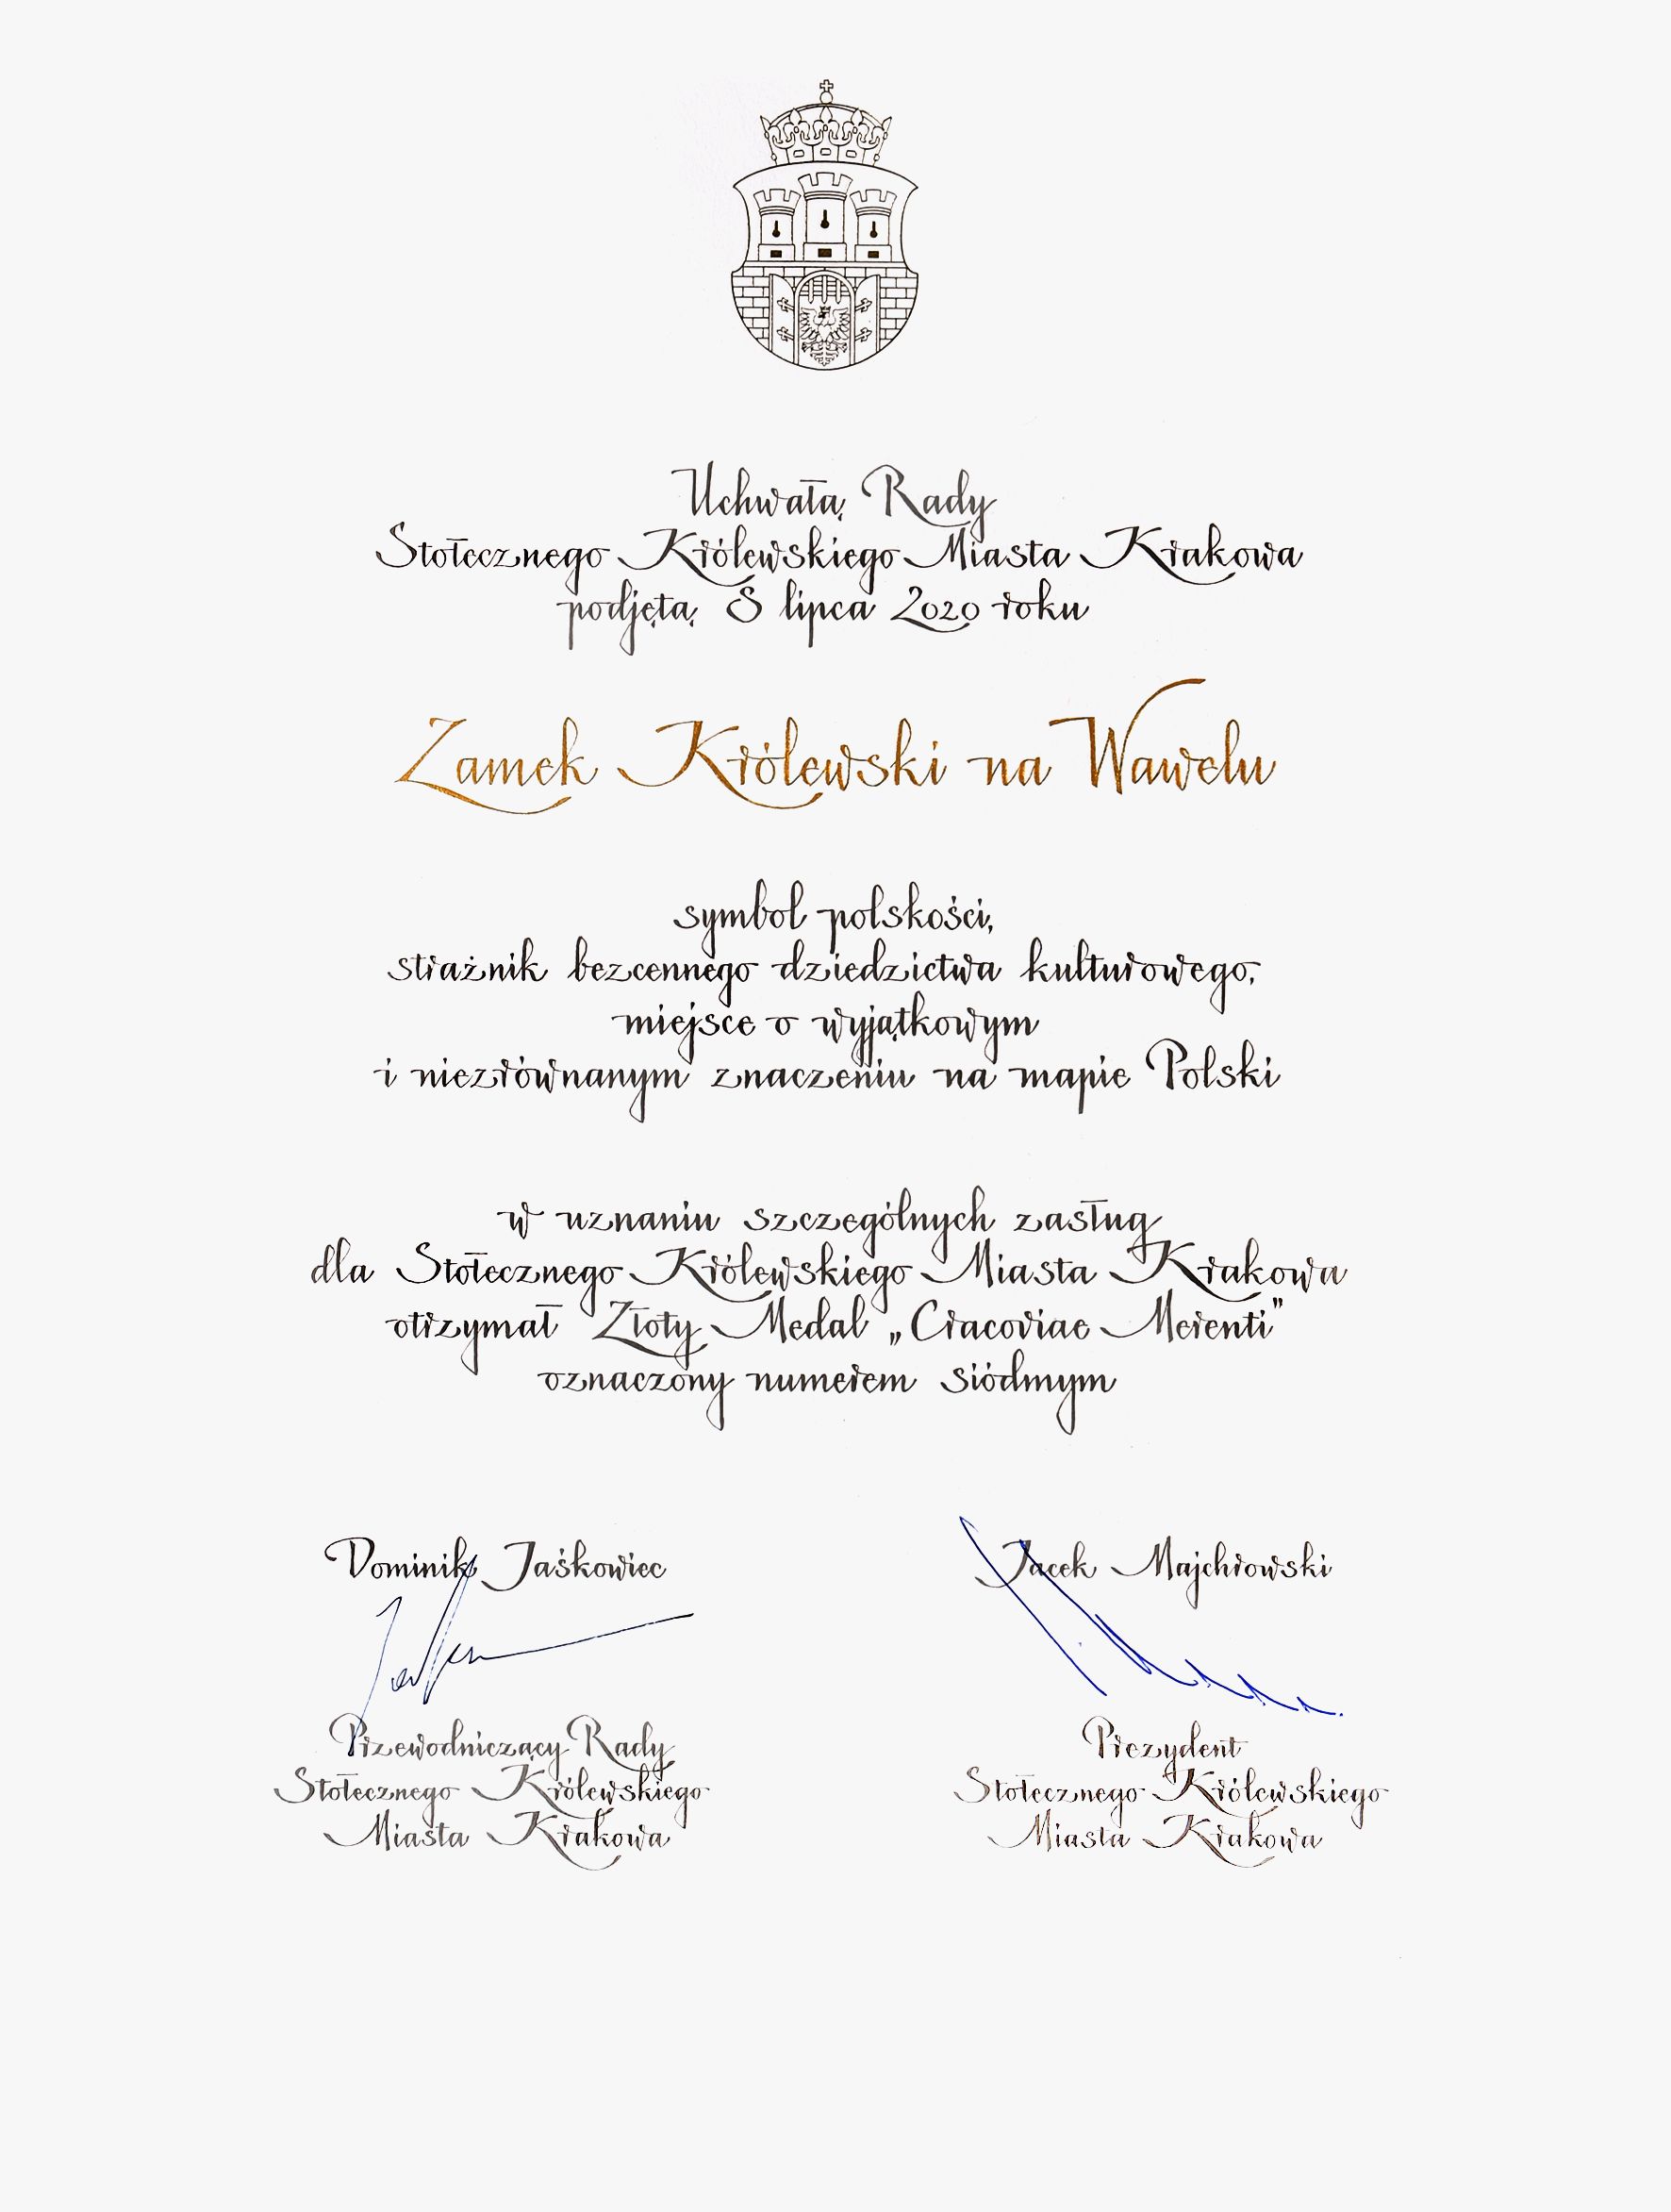 Uchwałą Rady
Stołecznego Królewskiego Miasta Krakowa
podjętą 8 lipca 2020 roku
Zamek Królewski na Wawelu
symbol polskości,
strażnik bezcennego dziedzictwa kulturowego,
miejsce o wyjątkowym
i niezrównanym znaczeniu na mapie Polski
w uznaniu szczególnych zasług
dla Stołecznego Królewskiego Miasta Krakowa
otrzymał Złoty Medal „Cracoviae Merenti”
oznaczony numerem siódmym
Dominik Jaśkowiec
Przewodniczący Rady
Stołecznego Królewskiego
Miasta Krakowa
Jacek Majchrowski
Prezydent
Stołecznego Królewskiego
Miasta Krakowa